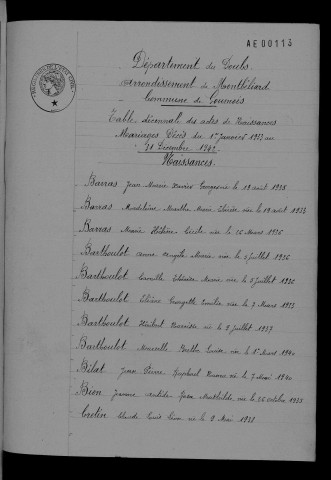 AE00113
Département du Doubs
arrondissement de Montbéliard
Commune de Goumois
Table décennale des actes de Naissances
Mariages Décès du 1er Janvier 1933 au
31 Décembre 1942
Naissances.
Barras Jean Marie né le 19 août 1938
Barras Madeleine Marthe Marie Thérèse née le 19 août 1938
Barras Marie Hélène Cécile née le 26 Mars 1936
Barthoulot Anne Angèle Marie née le 5 Juillet 1936
Barthoulot Camille Thérèse Marie née le 5 Juillet 1936
Barthoulot Georgette Emilie née le 2 Mars 1933
Barthoulot Norbert né le 2 Juillet 1937
Barthoulot Marcelle Berthe Louise née le 1er Mars 1940
Bilat Jean Pierre Raphaël né le 7 Mai 1940
Bion Jeannine Mathilde née le 26 octobre 1933
Cretin Claude Louis né le 2 Mai 1933